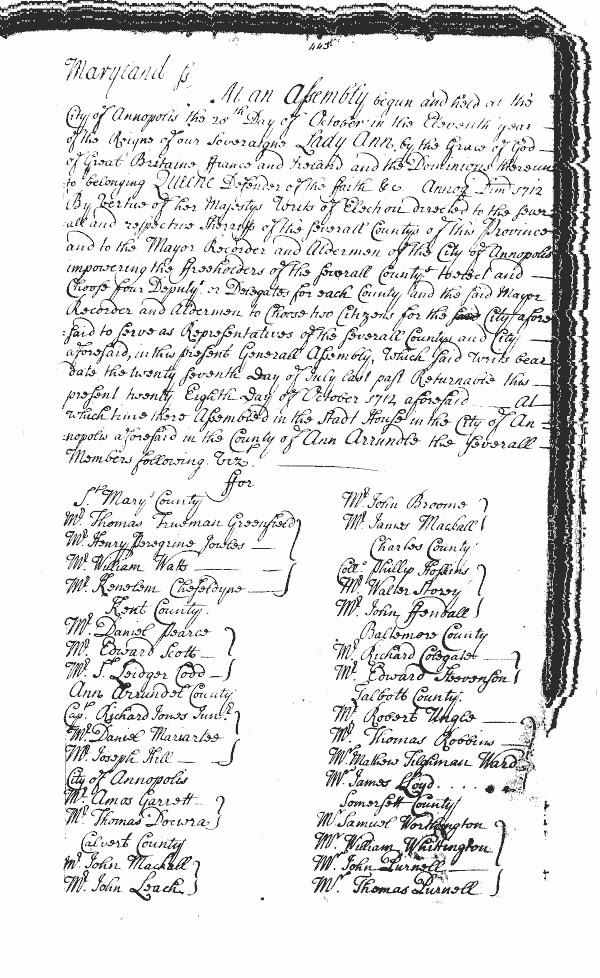 Maryland ss
At an Assembly begun and held at the
City of Annopolis the 28th Day of October in the Eleventh year
of the Reigne of our Soveraigne Lady Ann, by the Grace of God
of Great Britaine ffrance and Ireland and the Dominions thereun
to belonging Queene Defender of the ffaith &c Annoq Dmi 1712
By Vertue of her Majestys Writs of Election directed to the sever
all and respective Sherriffs of the severall Countys of this Province
and to the Mayor Recorder and Aldermen of the City of Annopolis
impowering the ffreeholders of the severall Countys to elect and
Choose four Deputys or Delegates for each County and the said Mayor
Recorder and Aldermen to Choose two Citizens for the said City afore
said to serve as Representatives of the severall Countys and City
aforesaid, in this present Generall Assembly, Which said Writs bear
date the twenty seventh Day of July last past Returnable this
present twenty Eighth Day of October 1712 aforesaid At
which time there Assembled in the Stadt House in the City of An-
nopolis aforesaid in the County of Ann Arrundle the severall
Members following Vizt.
ffor
St. Marys County
Mr. Thomas Trueman Greenfield
Mr. Henry Peregrine Jowles
Mr. William Watts
Mr. Kenelem Cheseldyne
Kent County.
Mr. Daniel Pearce
Mr. Edward Scott
Mr. St. Leidger Codd
Ann Arrundel County
Capt. Richard Jones Junr.
Mr. Daniel Mariartee
Mr. Joseph Hill
City of Annopolis
Mr. Amos Garrett
Mr. Thomas Docwra
Calvert County
Mr. John Mackall
Mr. John Leach
Mr. John Broome
Mr. James Mackall
Charles County
Coll. Phillip Hoskins
Mr. Walter Storey
Mr. John ffendall
Baltemore County
Mr. Richard Colegate
Mr. Edward Steevenson
Talbott County.
Mr. Robert Ungle
Mr. Thomas Robbins
Mr. Mathew Tilghman Ward
Mr. James Lloyd
Somersett County
Mr. Samuel Worthington
Mr. William Whitington
Mr. John Purnell
Mr. Thomas Purnell